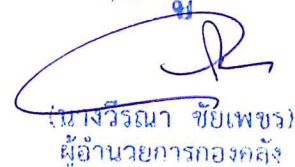 (นางวีรณา ชัยเพชร)
ผู้อำนวยการกองคลัง